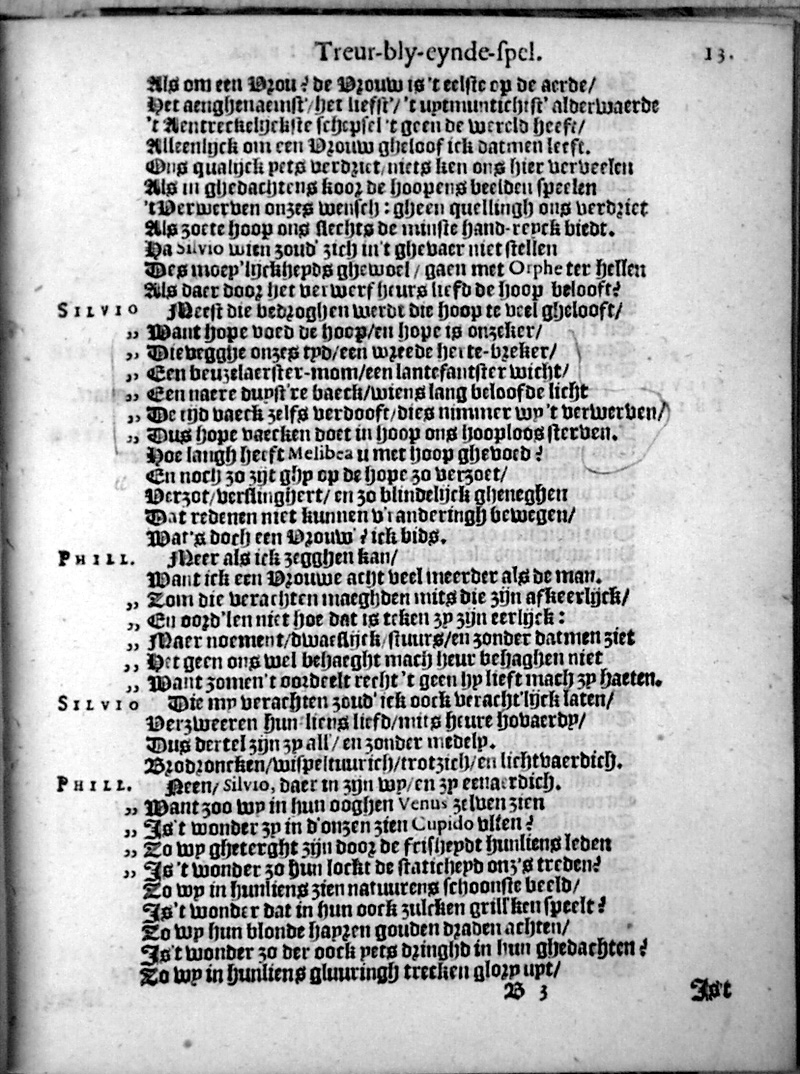 Treur-bly-eynde-spel. 13.
Als om een Vrou? de Vrouw is 't eelste op de aerde/
Het aenghenaemst'/het liefst'/'t uptmuntichst' alderwaerde
't Aentreckelijckste schepsel 't geen de wereld heeft/
Alleenlijck om een Vrouw gheloof ick datmen leeft.
Ons qualijck yets verdriet/niets ken ons hier verveelen
Als in ghedachtens koor de hoopens beelden speelen
'tVerwerven onzes wensch: gheen quellingh ons verdriet
Als zoete hoop ons slechts de minste hand-reyck biedt.
Ha Silvio wien zoud' zich in't ghevaer niet stellen
Des moey'lijckheyds ghewoel/ gaen met Orphe ter hellen
Als daer door het verwerf heurs liefd de hoop belooft?
SILVIO Meest die bedroghen werdt die hoop te veel ghelooft/
„ Want hope voed de hoop/en hope is onzeker/
„ Dievegghe onzes tyd/een wreede herte-breker/
„ Een beuzelaerster-mom/een lantefantster wicht/
„ Een naere duyst're baeck/wiens lang beloofde licht
„ De tijd vaeck zelfs verdooft/dies nimmer wy't verwerven/
„ Dus hope vaecken doet in hoop ons hooploos sterven.
Hoe langh heeft Melibea u met hoop ghevoed?
En noch zo zijt ghy op de hope zo verzoet/
Verzot/verslinghert/ en zo blindelijck gheneghen
Dat redenen niet kunnen v'randeringh bewegen/
Wat's doch een Vrouw? ick bids.
PHILL. Meer als ick zegghen kan/
Want ick een Vrouwe acht veel meerder als de man.
„ Zom die verachten maeghden mits die zijn afkeerlijck/
„ En oord'len niet hoe dat is teken zy zijn eerlijck:
„ Maer noement/dwaeslijck/stuurs/en zonder datmen ziet
„ Het geen ons wel behaeght mach heur behaghen niet
„ Want zomen't oordeelt recht 't geen hy lieft mach zy haeten.
SILVIO Die my verachten zoud' ick oock veracht'lijck laten/
Verzweeren hun-liens liefd/mits heure hovaerdy/
Dus dertel zijn zy all'/ en zonder medely.
Brodroncken/wispeltuurich/trotzich/en lichtvaerdich.
PHILL. Neen/ Silvio, daer in zijn wy/en zy eenaerdich.
„ Want zoo wy in hun ooghen Venus zelven zien
„ Is't wonder zy in d'onzen zien Cupido vlien?
„ Zo wy gheterght zijn door de frisheydt hunliens leden
„ Is 't wonder zo hun lockt de statichheyd onz's treden?
Zo wy in hunliens zien natuurens schoonste beeld/
Is't wonder dat in hun oock zulcken grill'ken speelt?
Zo wy hun blonde hayren gouden draden achten/
Is't wonder zo der oock yets dringhd in hun ghedachten?
Zo wy in hunliens gluuringh trecken glory uyt/
B 3 Is't